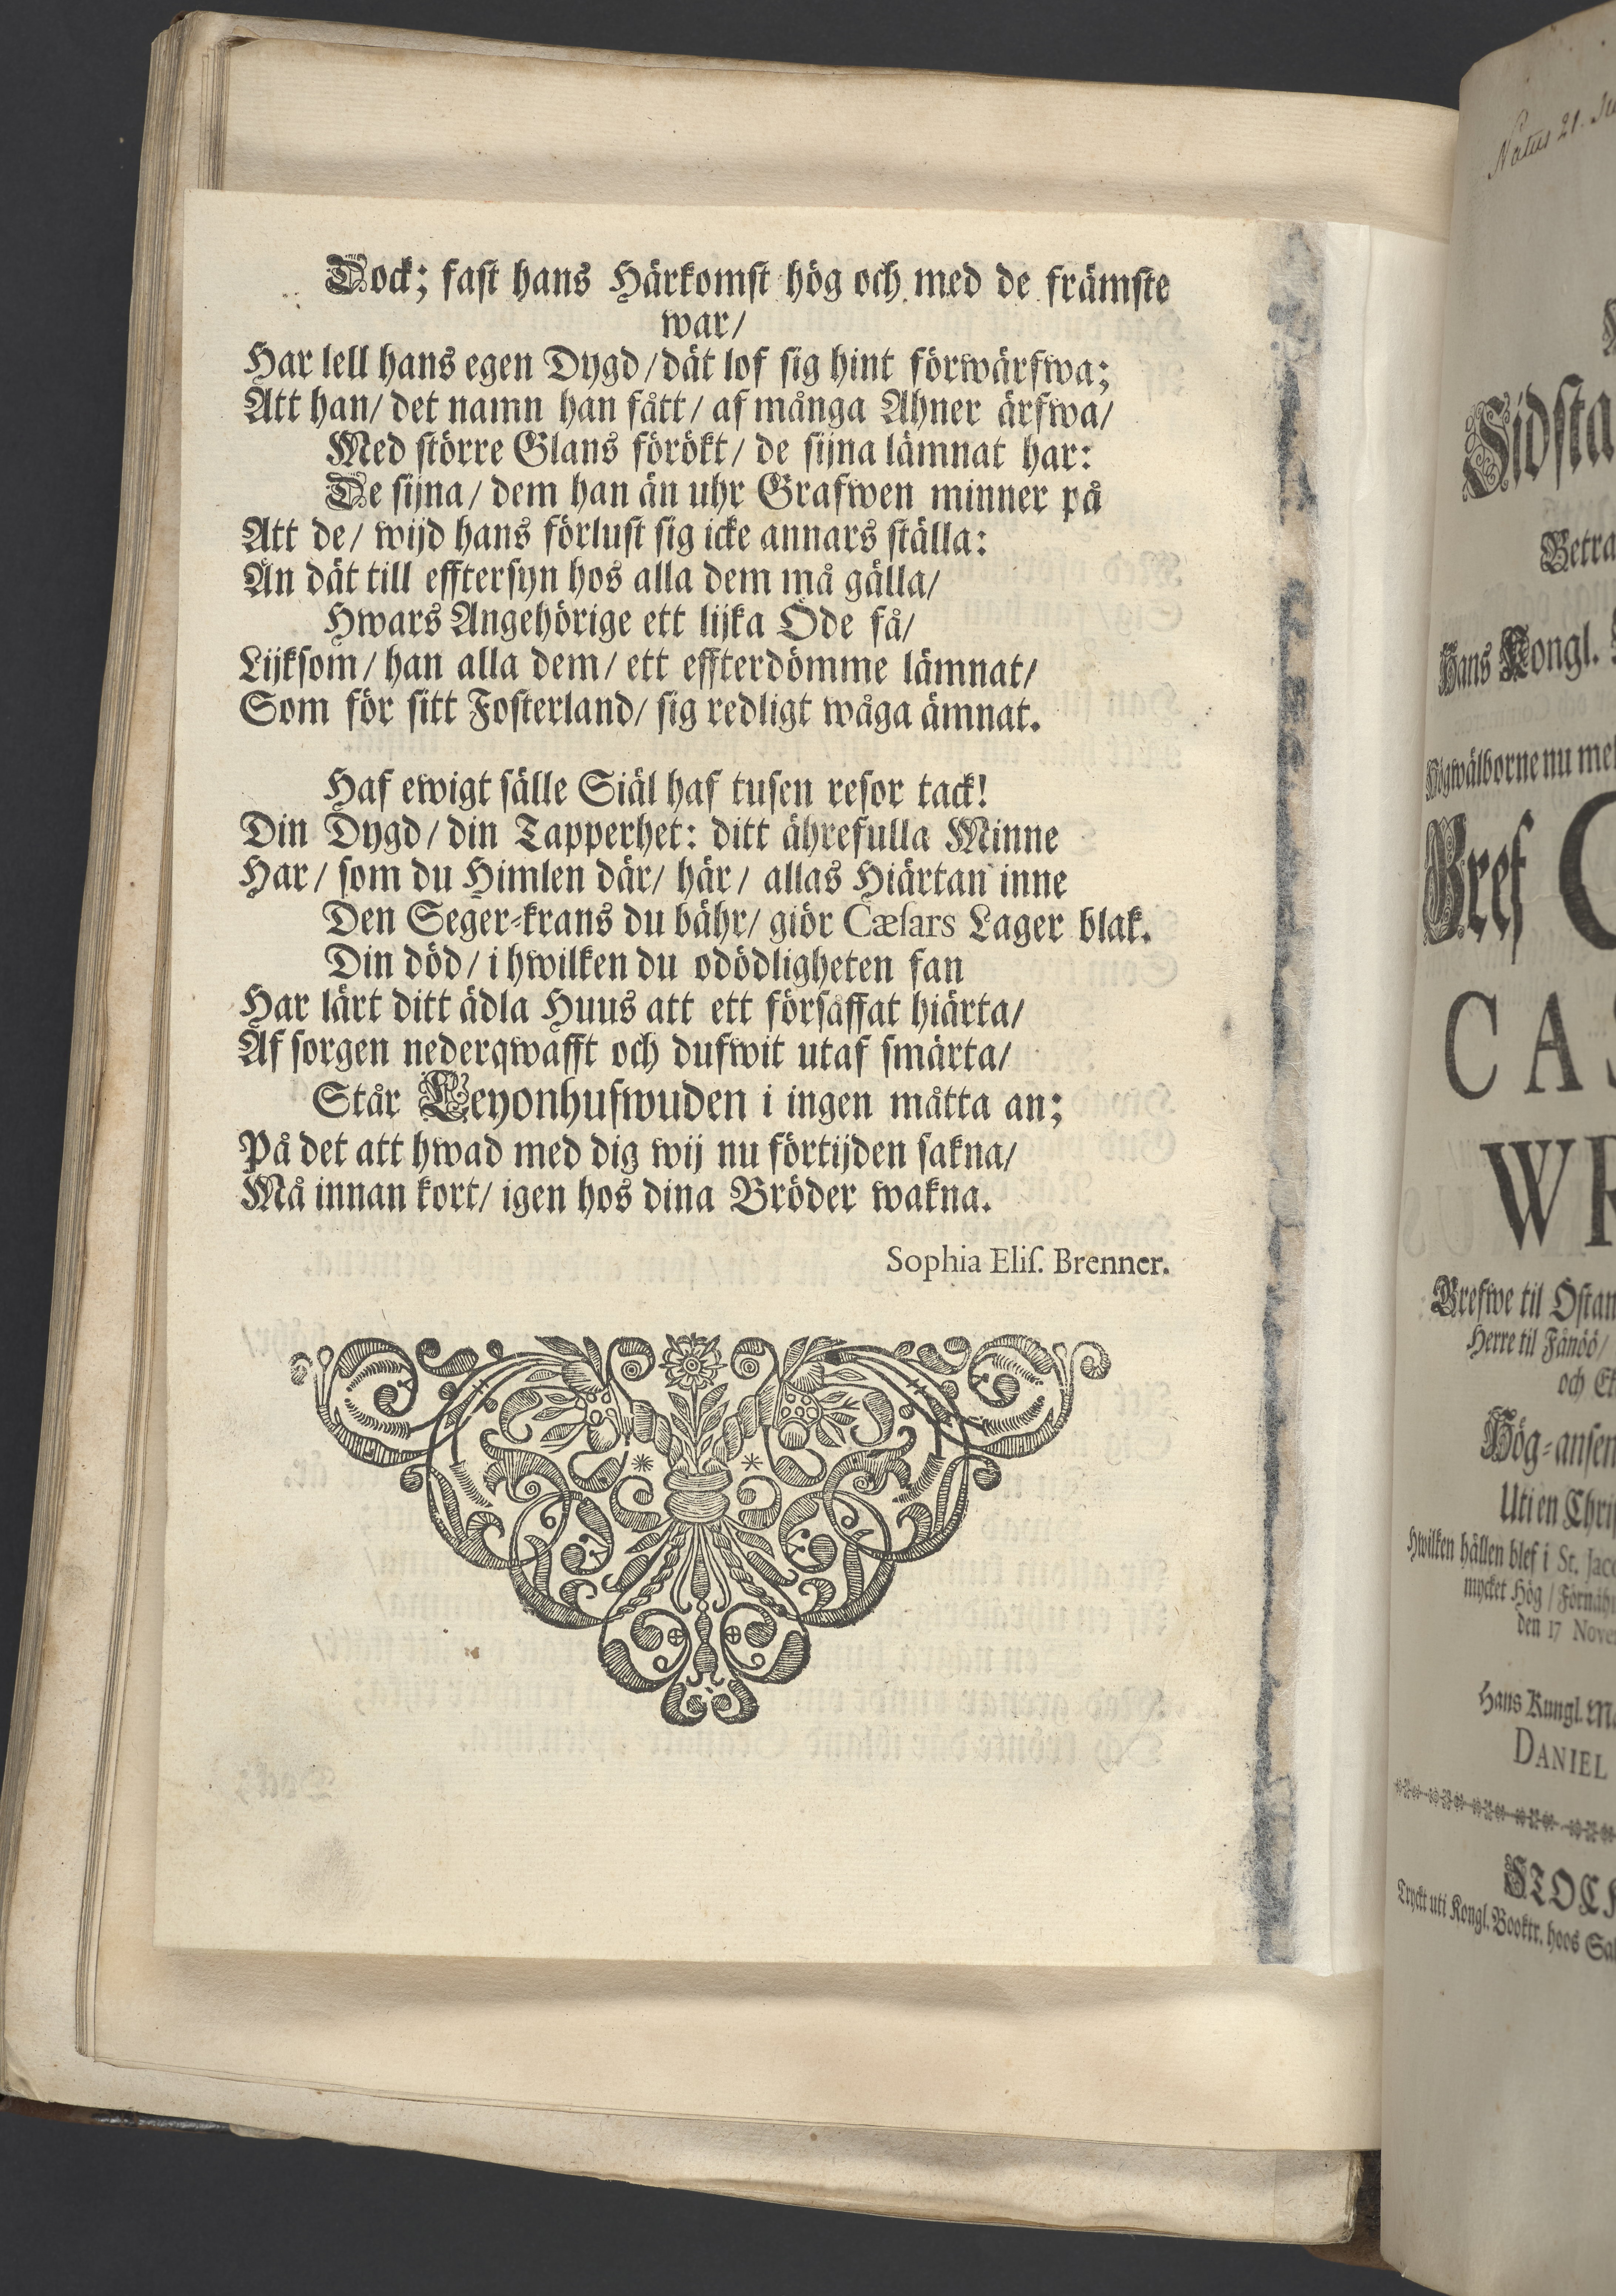 Dock; fast hans Härkomst hög och med de främste
war/
Har lell hans egen Dygd/dät lof sig hint förwärfwa;
Att han/ det namn han fått/ af många Ahner ärfwa/
Med större Glans förökt/ de sijna lämnat har:
De sijna/ dem han än uhr Grafwen minner på
Att de/ wijd hans förlust sig icke annars ställa:
Än dät till efftersyn hos alla dem må gälla/
Hwars Angehörige ett lijka Öde få/
Lijksom/ han alla dem/ ett effterdömme lämnat/
Som för sitt Fosterland/ sig redligt wåga ämnat.
Haf ewigt sälle Siäl haf tusen resor tack!
Din Dygd/ din Tapperhet: ditt ährefulla Minne
Har/ som du Himlen där/ här/ allas Hiärtan inne
Den Seger-krans du bähr/ giör Cæsars Lager blak.
Din död/ i hwilken du odödligheten fan
Har lärt ditt ädla Huus att ett försåffat hiärta/
Af sorgen nederqwafft och dufwit utaf smärta/
Står Leyonhufwuden i ingen måtta an;
På det att hwad med dig wij nu förtijden sakna/
Må innan kort/ igen hos dina Bröder wakna.
Sophia Elis. Brenner.
Natus 21.
Sidsta
Betra
Hans Kongl.
Högwälborne nu me
Gref C
CAS
WR
Grefwe til Östan
Herre til Fånöö/
och Ek
Hög-ansen
Uti en Chri
Hwilken hållen blef i St. Jaco
mycket Hög/ Förnäh
den 17 Nove
Hans Kungl. Ma
DANIEL
STOCK
Tryckt uti Kongl. Booktr. hoos Sal